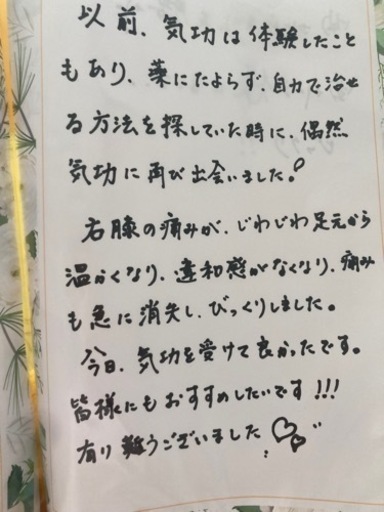 以前、気功は体験したこと
もあり、薬にたよらず、自力で治せ
る方法を探していた時に、偶然
気功に再び出会いました。
右膝の痛みが、じわじわ足元から
温かくなり、違和感がなくなり、痛み
も急に消失し、びっくりしました。
今日、気功を受けて良かったです。
皆様にもおすすめしたいです!!!
有り難うございました